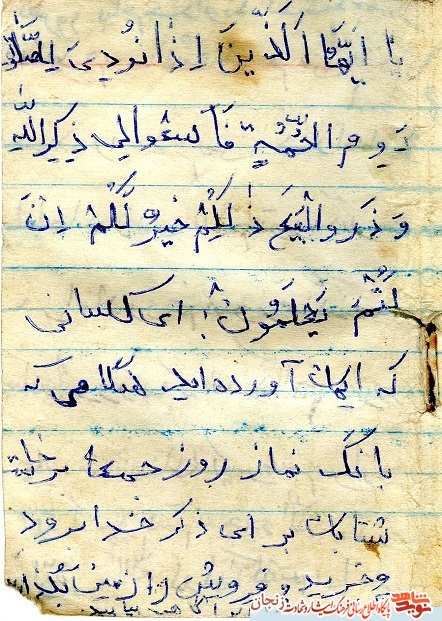 یا ایها الذین اذا نودی للصلوة
یوم الجمعة فاسعوا الی ذکر الله
و ذر و البیع ذلکم خیر لکم ان
کنتم تعلمون: ای کسانی
که ایمان آورده اید هنگامی که
بانگ نماز روز جمعه برخاست
شتابان برای ذکر خدا بروید
و خرید و فروش را زمین بگذارید
نوید شاهد
پایگاه اطلاع رسانی فرهنگ ایثار و شهادت زنجان